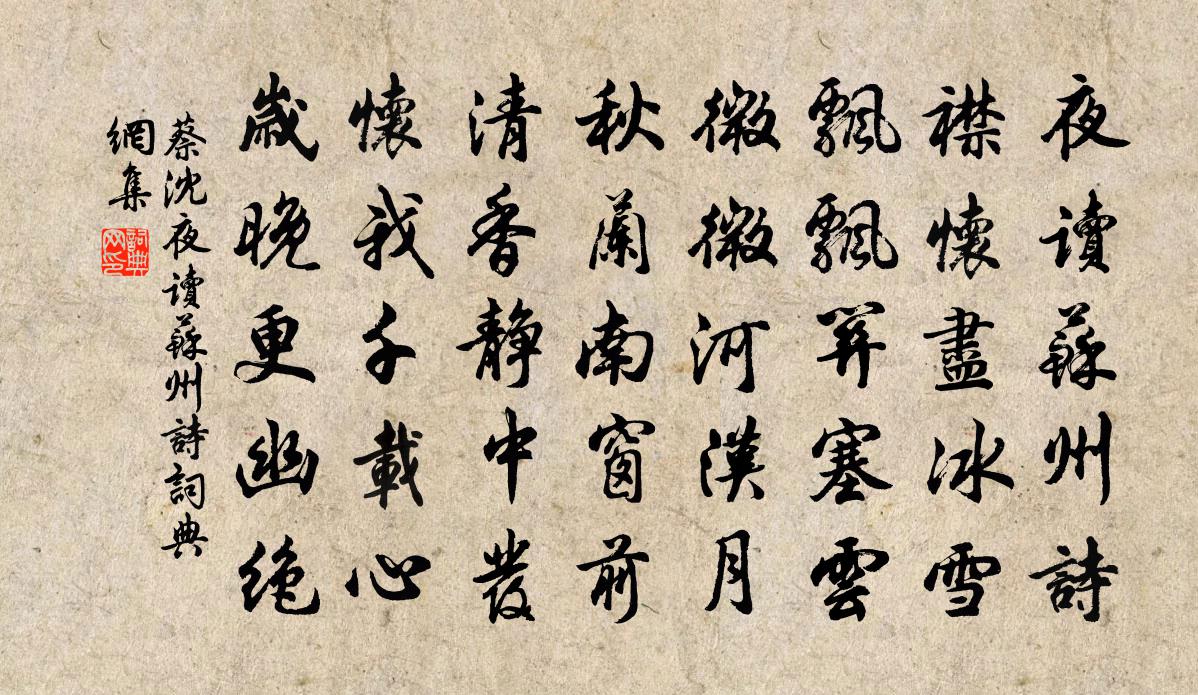 夜讀蘇州詩
襟懷盡冰雪
飄飄羿塞雲
微微河漢月
秋蘭南窗前
清香静中發
懷我千載心
歲晚更幽絶
蔡沈夜讀蘇州詩詞典
網集
詞典
网印